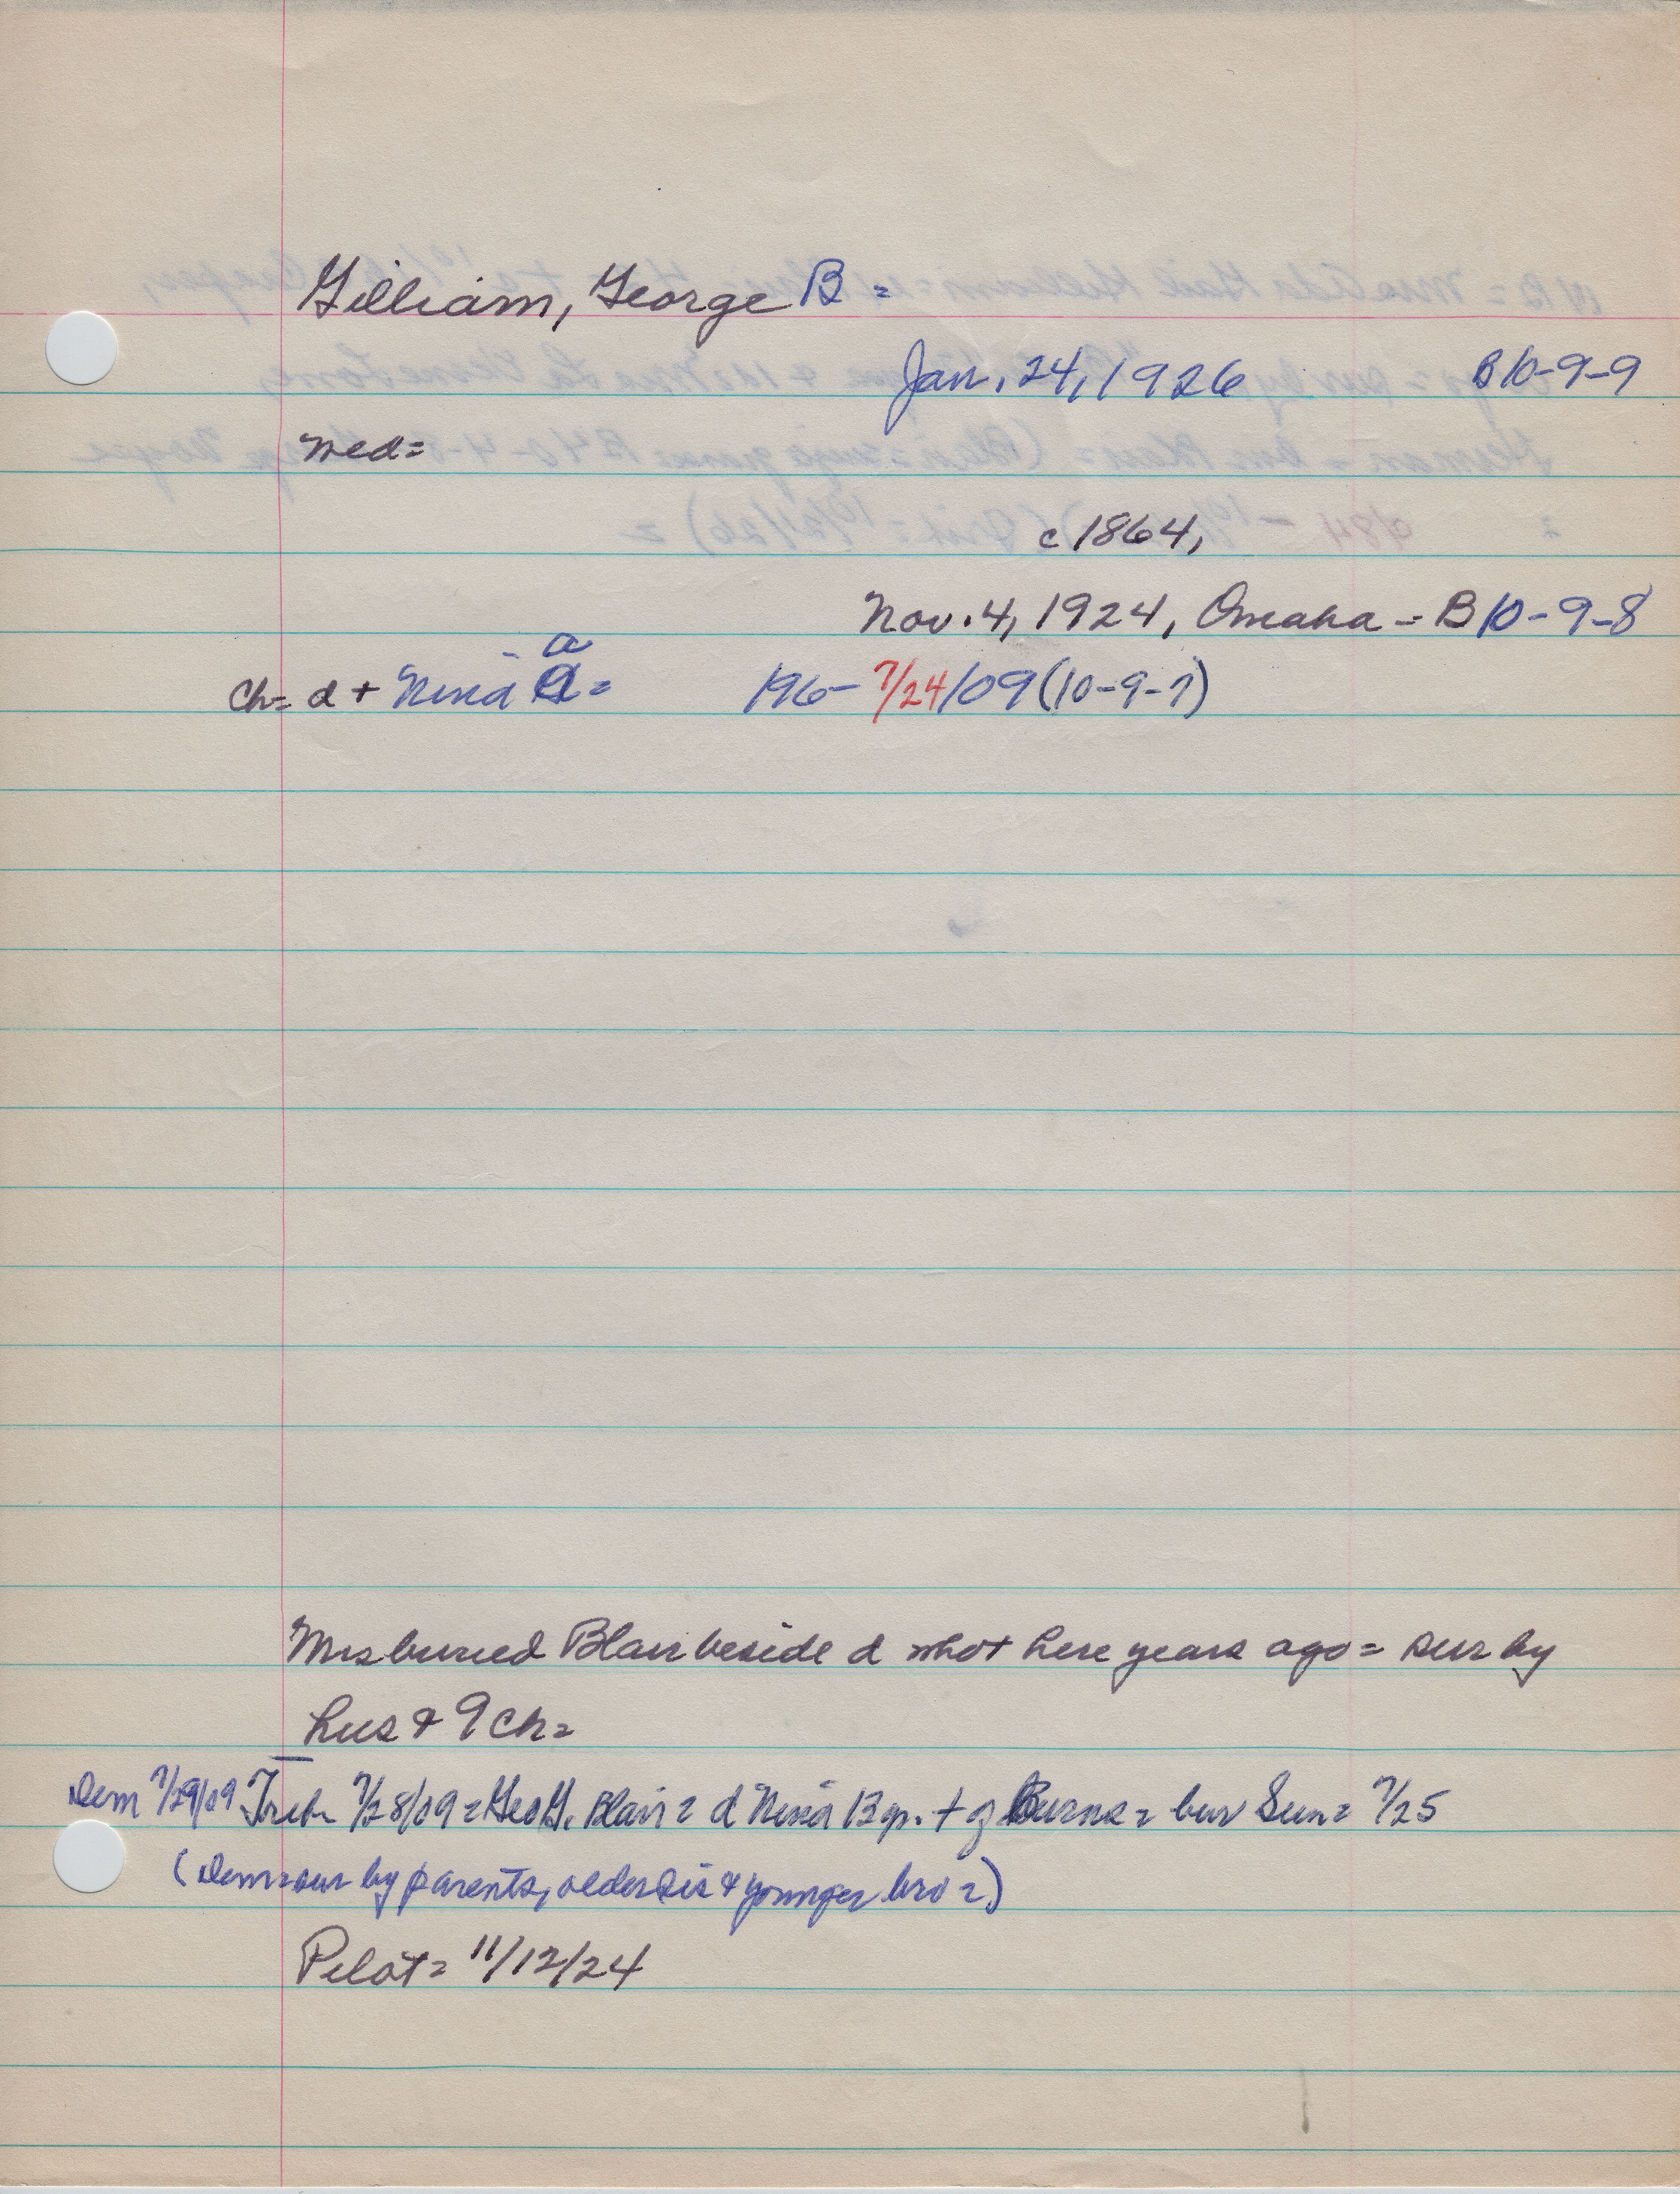 Gilliam, George B =
Jan. 24, 1926 B10-9-9
Wed=
c1864,
Nov. 4, 1924, Omaha - B10-9-8
a
ch= d + Nina A = 196- 7/24/09 (10-9-7)
Mrs buried Blair beside d shot here years ago = sur by
hus & 9 ch=
Dem 7/29/09 Trib 7/28/09 = Geo G. Blair = d Nina 13 yr. + of Burns = bur Sun = 7/25
(Dem = sur by parents, older sis & younger bro =)
Pilot = 11/12/24